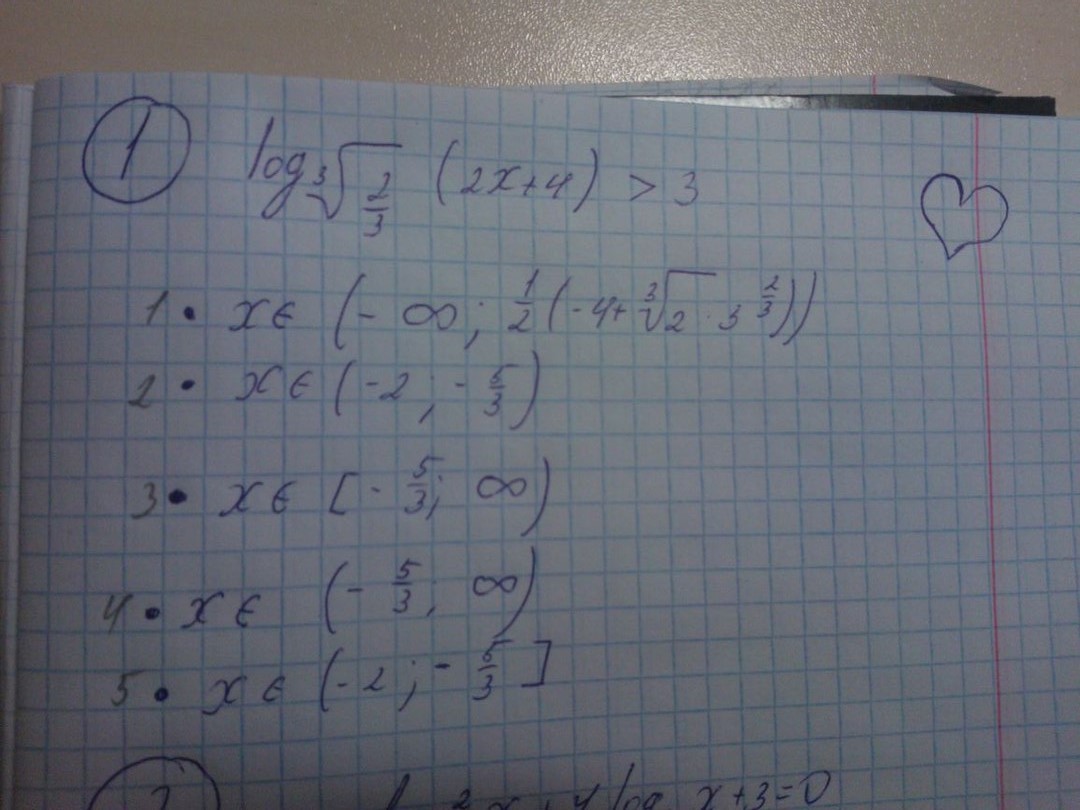 1 log_∛(2/3) (2x+4) > 3
1 • x ∈ (-∞; 1/2(-4+∛2 · 3^(2/3)))
2 • x ∈ (-2; -5/3)
3 • x ∈ [-5/3; ∞)
4 • x ∈ (-5/3; ∞)
5 • x ∈ (-2; -5/3]
x+3=0